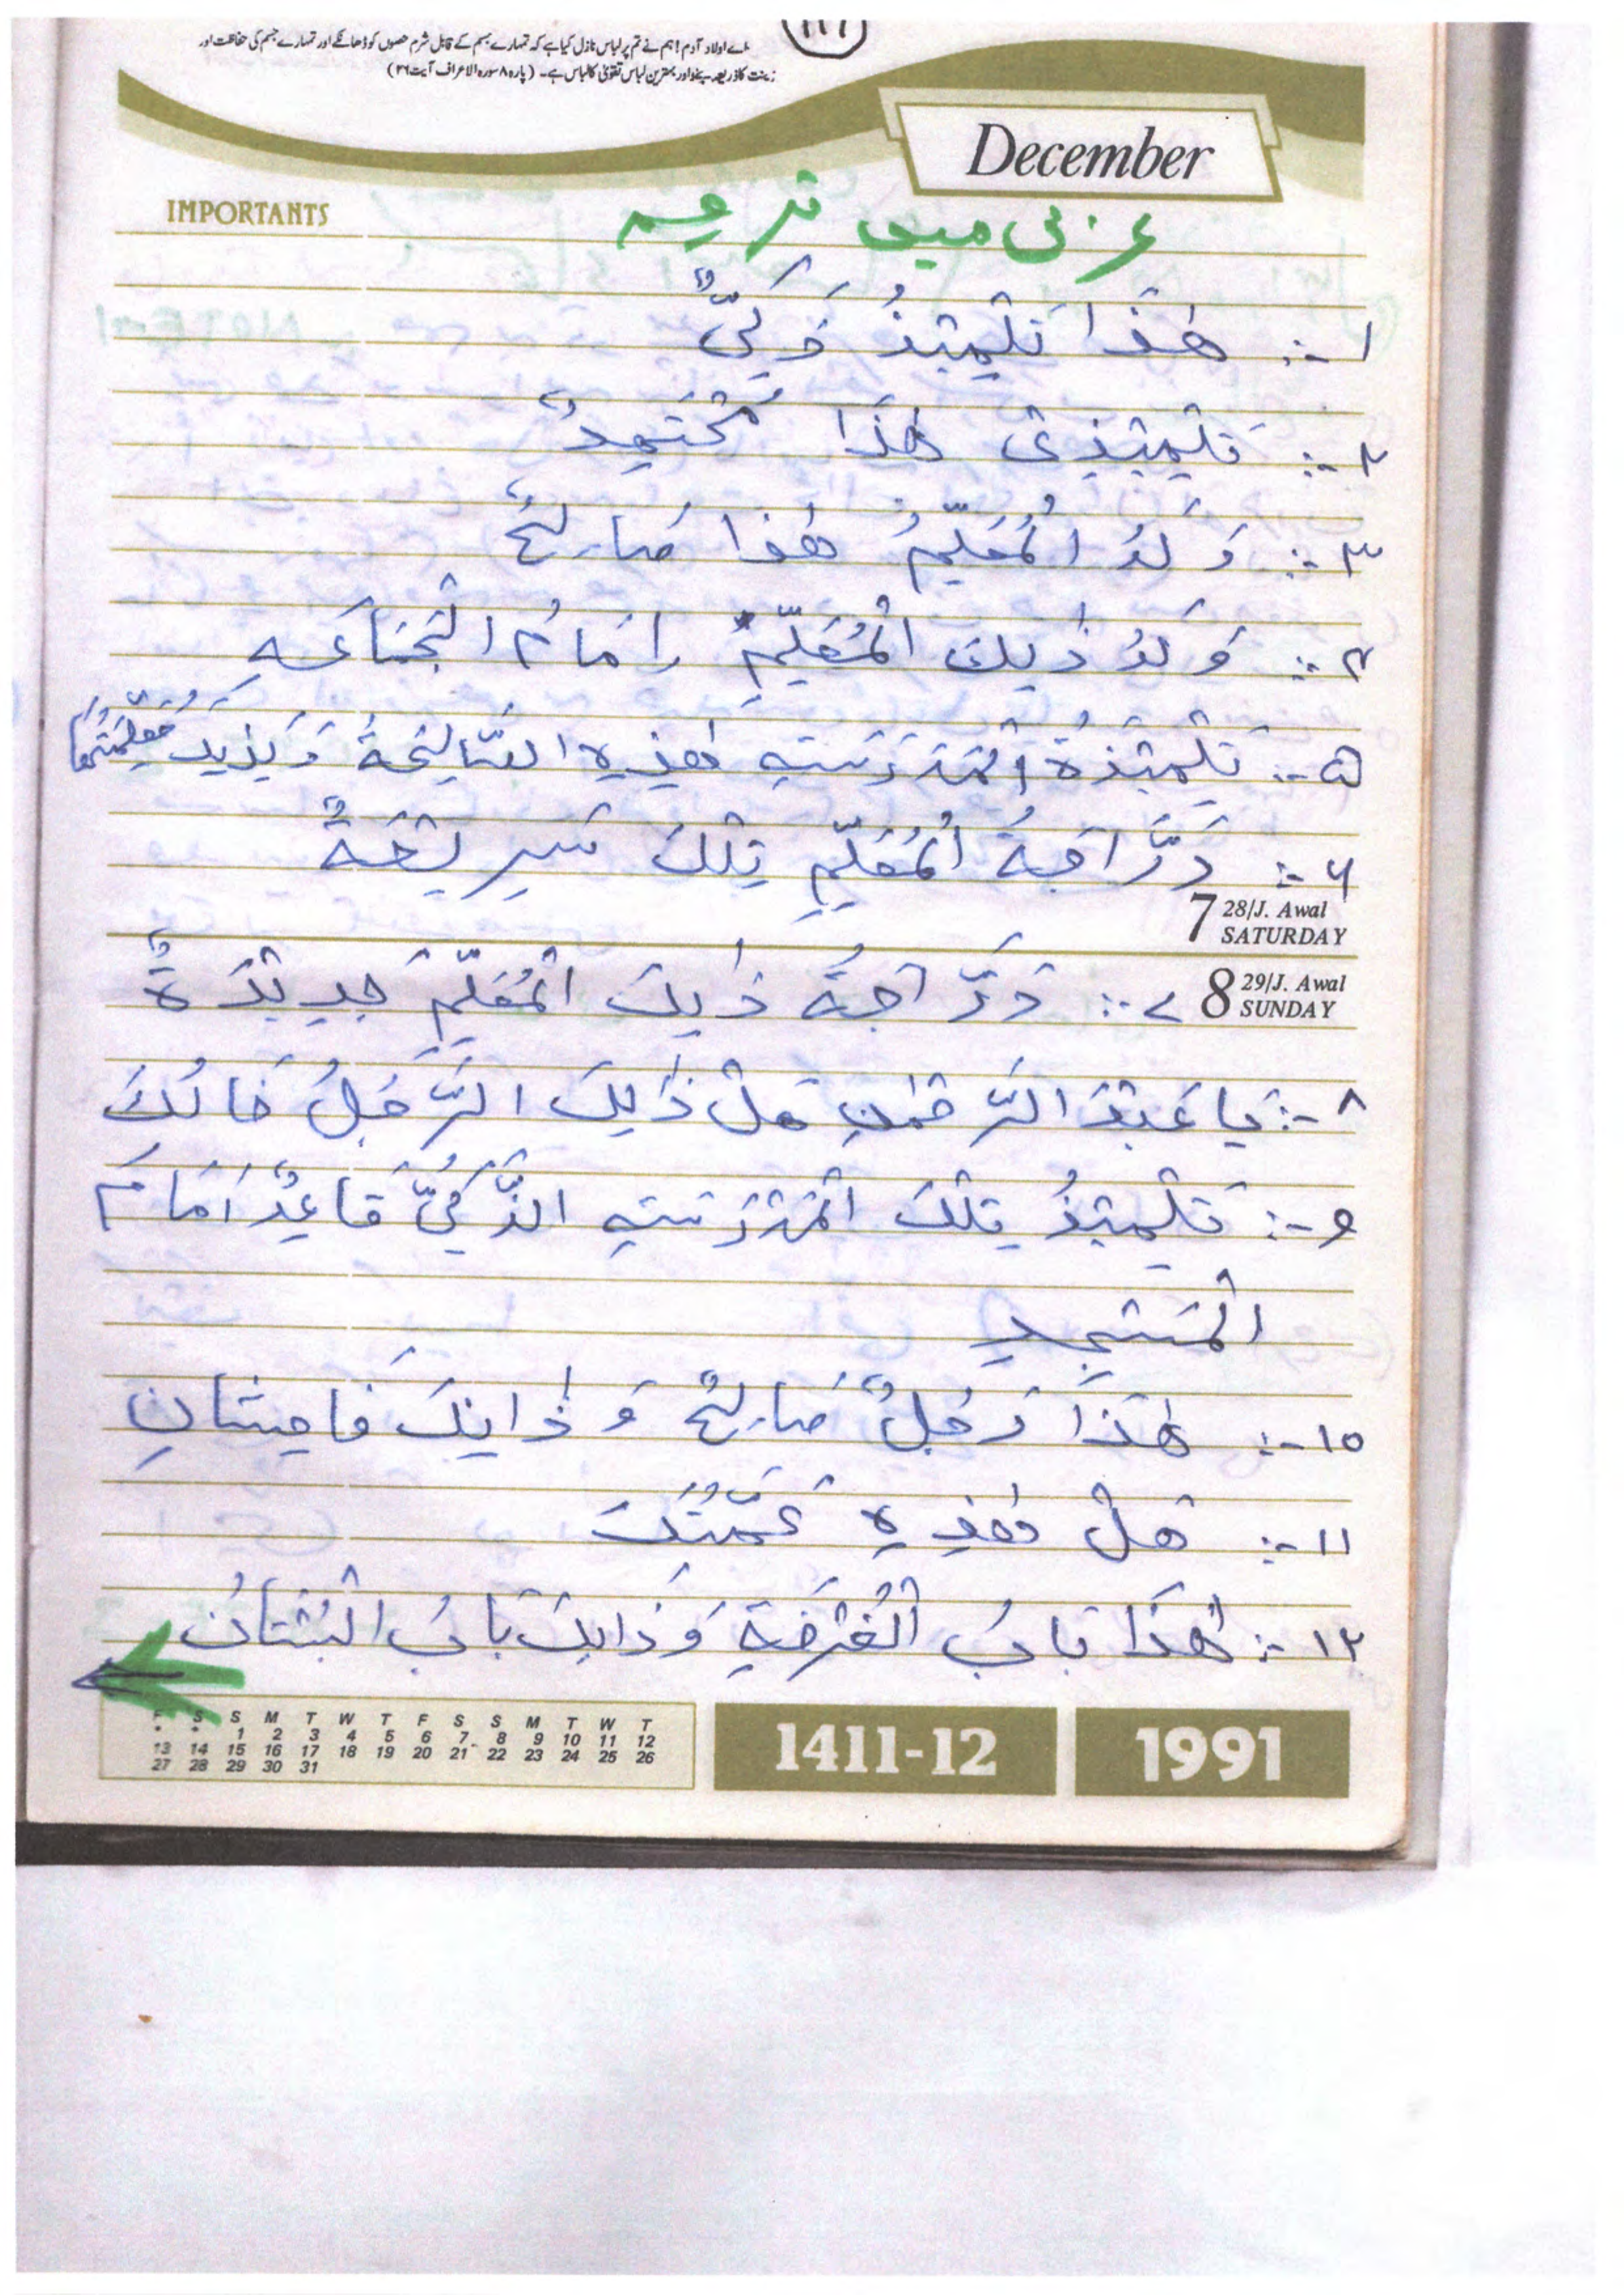 اے اولاد آدم! ہم نے تم پر لباس نازل کیا ہے کہ تمہارے جسم کے قابل شرم حصوں کو ڈھانکے اور تمہارے جسم کی حفاظت اور
زینت کا ذریعہ بنے اور بہترین لباس تقویٰ کا لباس ہے۔ (پارہ ۸ سورہ الاعراف آیت ۲۶)
December
IMPORTANTS
عربی میں ترجمہ
۱ -: هٰذَا تِلْمِيْذٌ ذَكِىٌّ
۲ -: تِلْمِيْذِىْ هٰذَا مُجْتَهِدٌ
۳ -: وَلَدُ الْمُعَلِّمِ هٰذَا صَالِحٌ
۴ -: وَلَدُ ذٰلِكَ الْمُعَلِّمِ اِمَامُ الْجَمَاعَةِ
۵ -: تِلْمِيْذَةُ الْمَدْرَسَةِ هٰذِهِ الصَّالِحَةُ وَ مُعَلِّمَتُهَا
۶ -: دَرَّاجَةُ الْمُعَلِّمِ تِلْكَ سَرِيْعَةٌ
7 28/J. Awal
SATURDAY
8 29/J. Awal
SUNDAY
۷ -: دَرَّاجَةُ ذٰلِكَ الْمُعَلِّمِ جَدِيْدَةٌ
۸ -: يَا عَبْدَ الرَّحْمٰنِ هَلْ ذٰلِكَ الرَّجُلُ خَالُكَ
۹ -: تِلْمِيْذُ تِلْكَ الْمَدْرَسَةِ الذَّكِىُّ قَاعِدٌ اَمَامَ
الْمَسْجِدِ
۱۰ -: هٰذَا رَجُلٌ صَالِحٌ وَ ذَانِكَ فَاسِقَانِ
۱۱ -: هَلْ هٰذِهِ عَمَّتُكَ
۱۲ -: هٰذَا بَابُ الْغُرْفَةِ وَ ذٰلِكَ بَابُ الْبُسْتَانِ
F S S M T W T F S S M T W T
* * 1 2 3 4 5 6 7 8 9 10 11 12
13 14 15 16 17 18 19 20 21 22 23 24 25 26
27 28 29 30 31
1411-12
1991